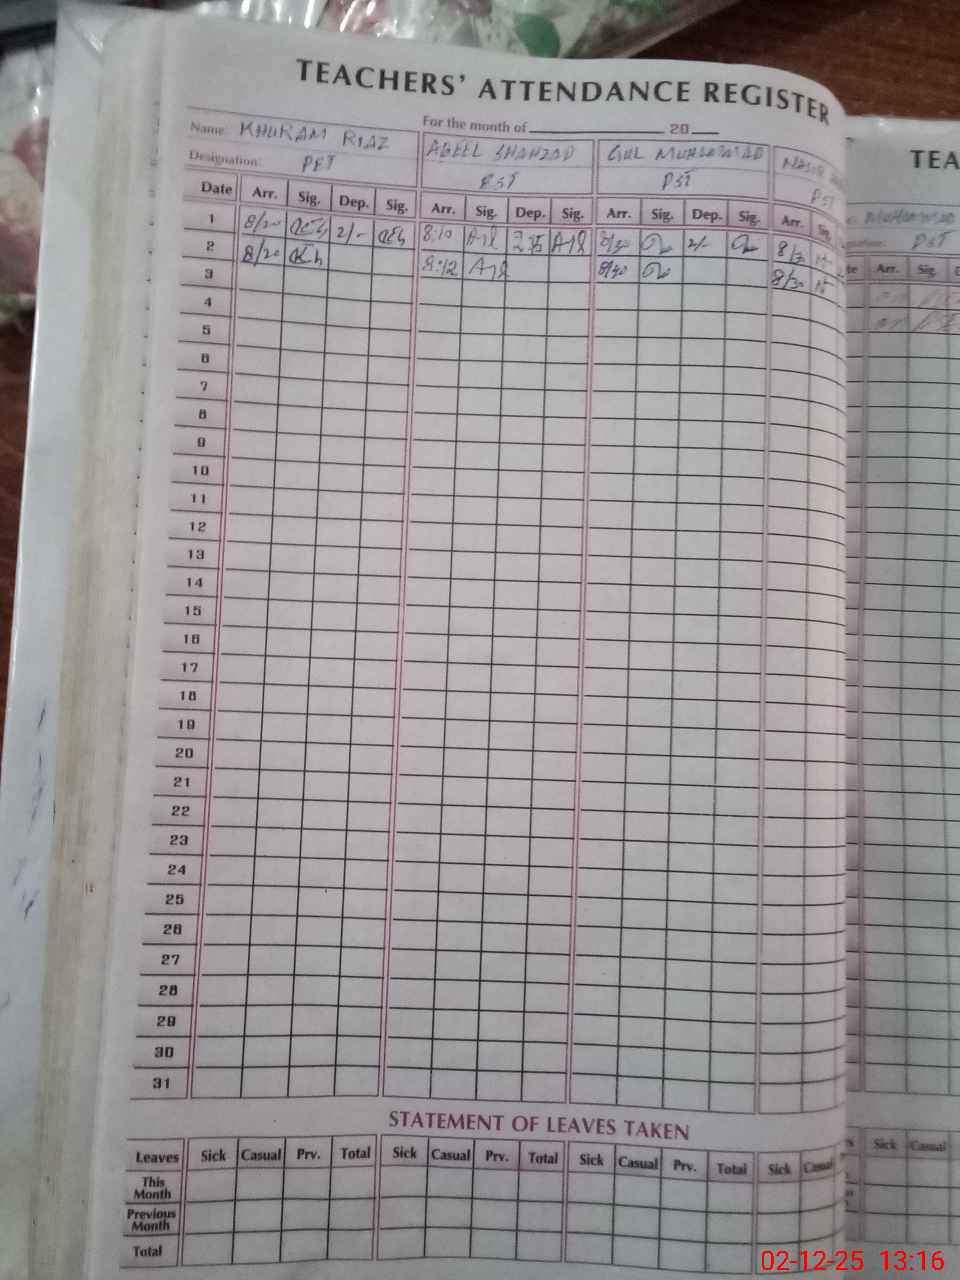 TEACHERS' ATTENDANCE REGISTER
For the month of 20
Name: KHURAM RIAZ AQEEL SHAHZAD GUL MUHAMMAD NASIR
Designation: PET PST PST
Date Arr. Sig. Dep. Sig. Arr. Sig. Dep. Sig. Arr. Sig. Dep. Sig. Arr. Sig.
1 8/20 2/- 8:10 8/30 2/- 8/30
2 8/20 8:12 8/30
3
4
5
6
7
8
9
10
11
12
13
14
15
16
17
18
19
20
21
22
23
24
25
26
27
28
29
30
31
STATEMENT OF LEAVES TAKEN
Leaves Sick Casual Prv. Total Sick Casual Prv. Total Sick Casual Prv. Total Sick Casual
This Month
Previous Month
Total
TEA
MUHAMMAD
PST
Arr. Sig.
Sick Casual
02-12-25 13:16